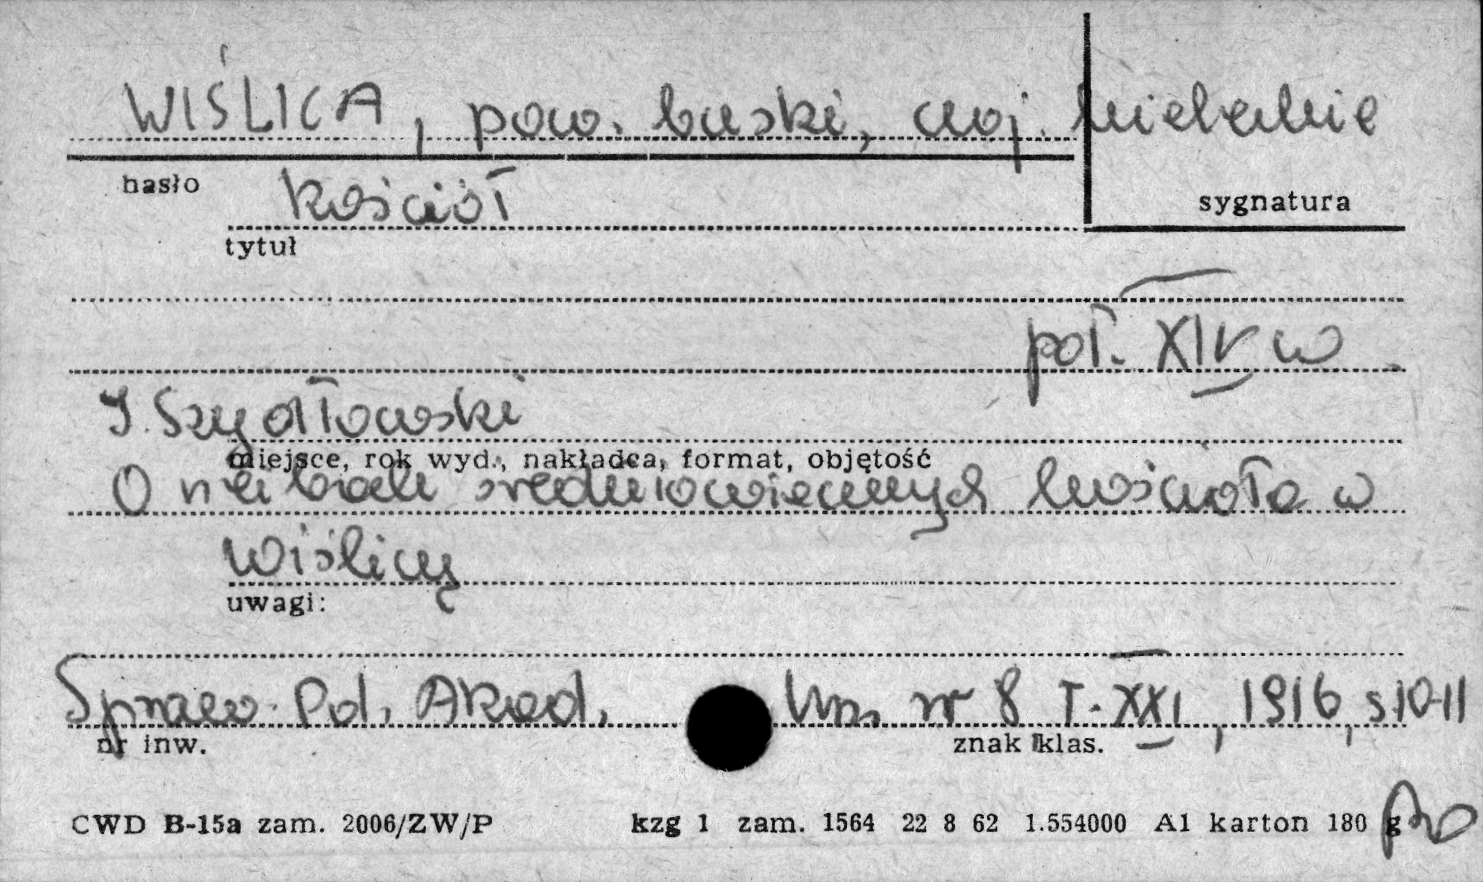 WIŚLICA, pow. buski, woj. kieleckie
hasło
sygnatura
kościół
tytuł
poł. XIV w.
J. Szydłowski
miejsce, rok wyd., nakładca, format, objętość
O średniowiecznych kościoła w
Wiślicy
uwagi:
Spraw. Pol. Akad. Um. nr 8 T. XXI, 1916, s. 10-11
nr inw.
znak klas.
CWD B-15a zam. 2006/ZW/P kzg 1 zam. 1564 22 8 62 1.554000 A1 karton 180 g